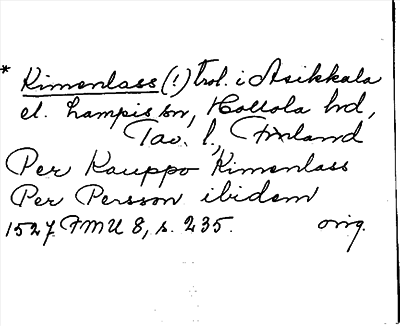 * Kimenlass (!) trol. i Asikkala
el. Lampis sn, Hollola hd,
Tav. l., Finland
Per Kauppo Kimenlass
Per Persson ibidem
1527 FMU 8, s. 235. orig.